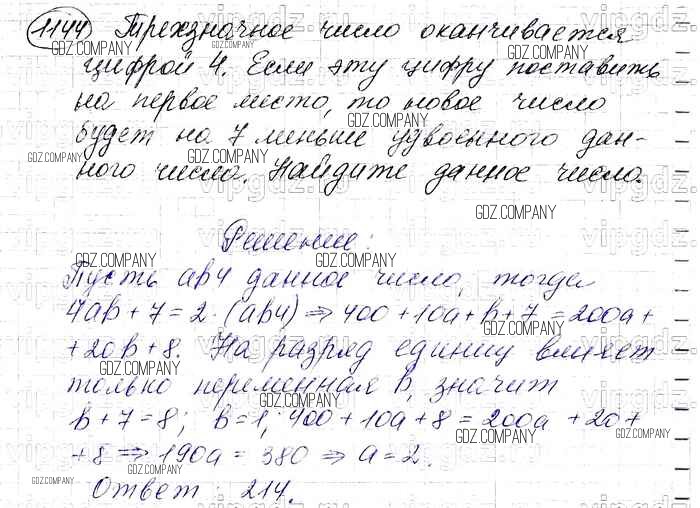 1144 Трехзначное число оканчивается
цифрой 4. Если эту цифру поставить
на первое место, то новое число
будет на 7 меньше удвоенного дан-
ного числа. Найдите данное число.
Решение:
Пусть ab4 данное число, тогда
4ab + 7 = 2 · (ab4) ⇒ 400 + 10a + b + 7 = 200a +
+ 20b + 8. На разряд единиц влияет
только переменная b, значит
b + 7 = 8; b = 1; 400 + 10a + 8 = 200a + 20 +
+ 8 ⇒ 190a = 380 ⇒ a = 2.
Ответ: 214.